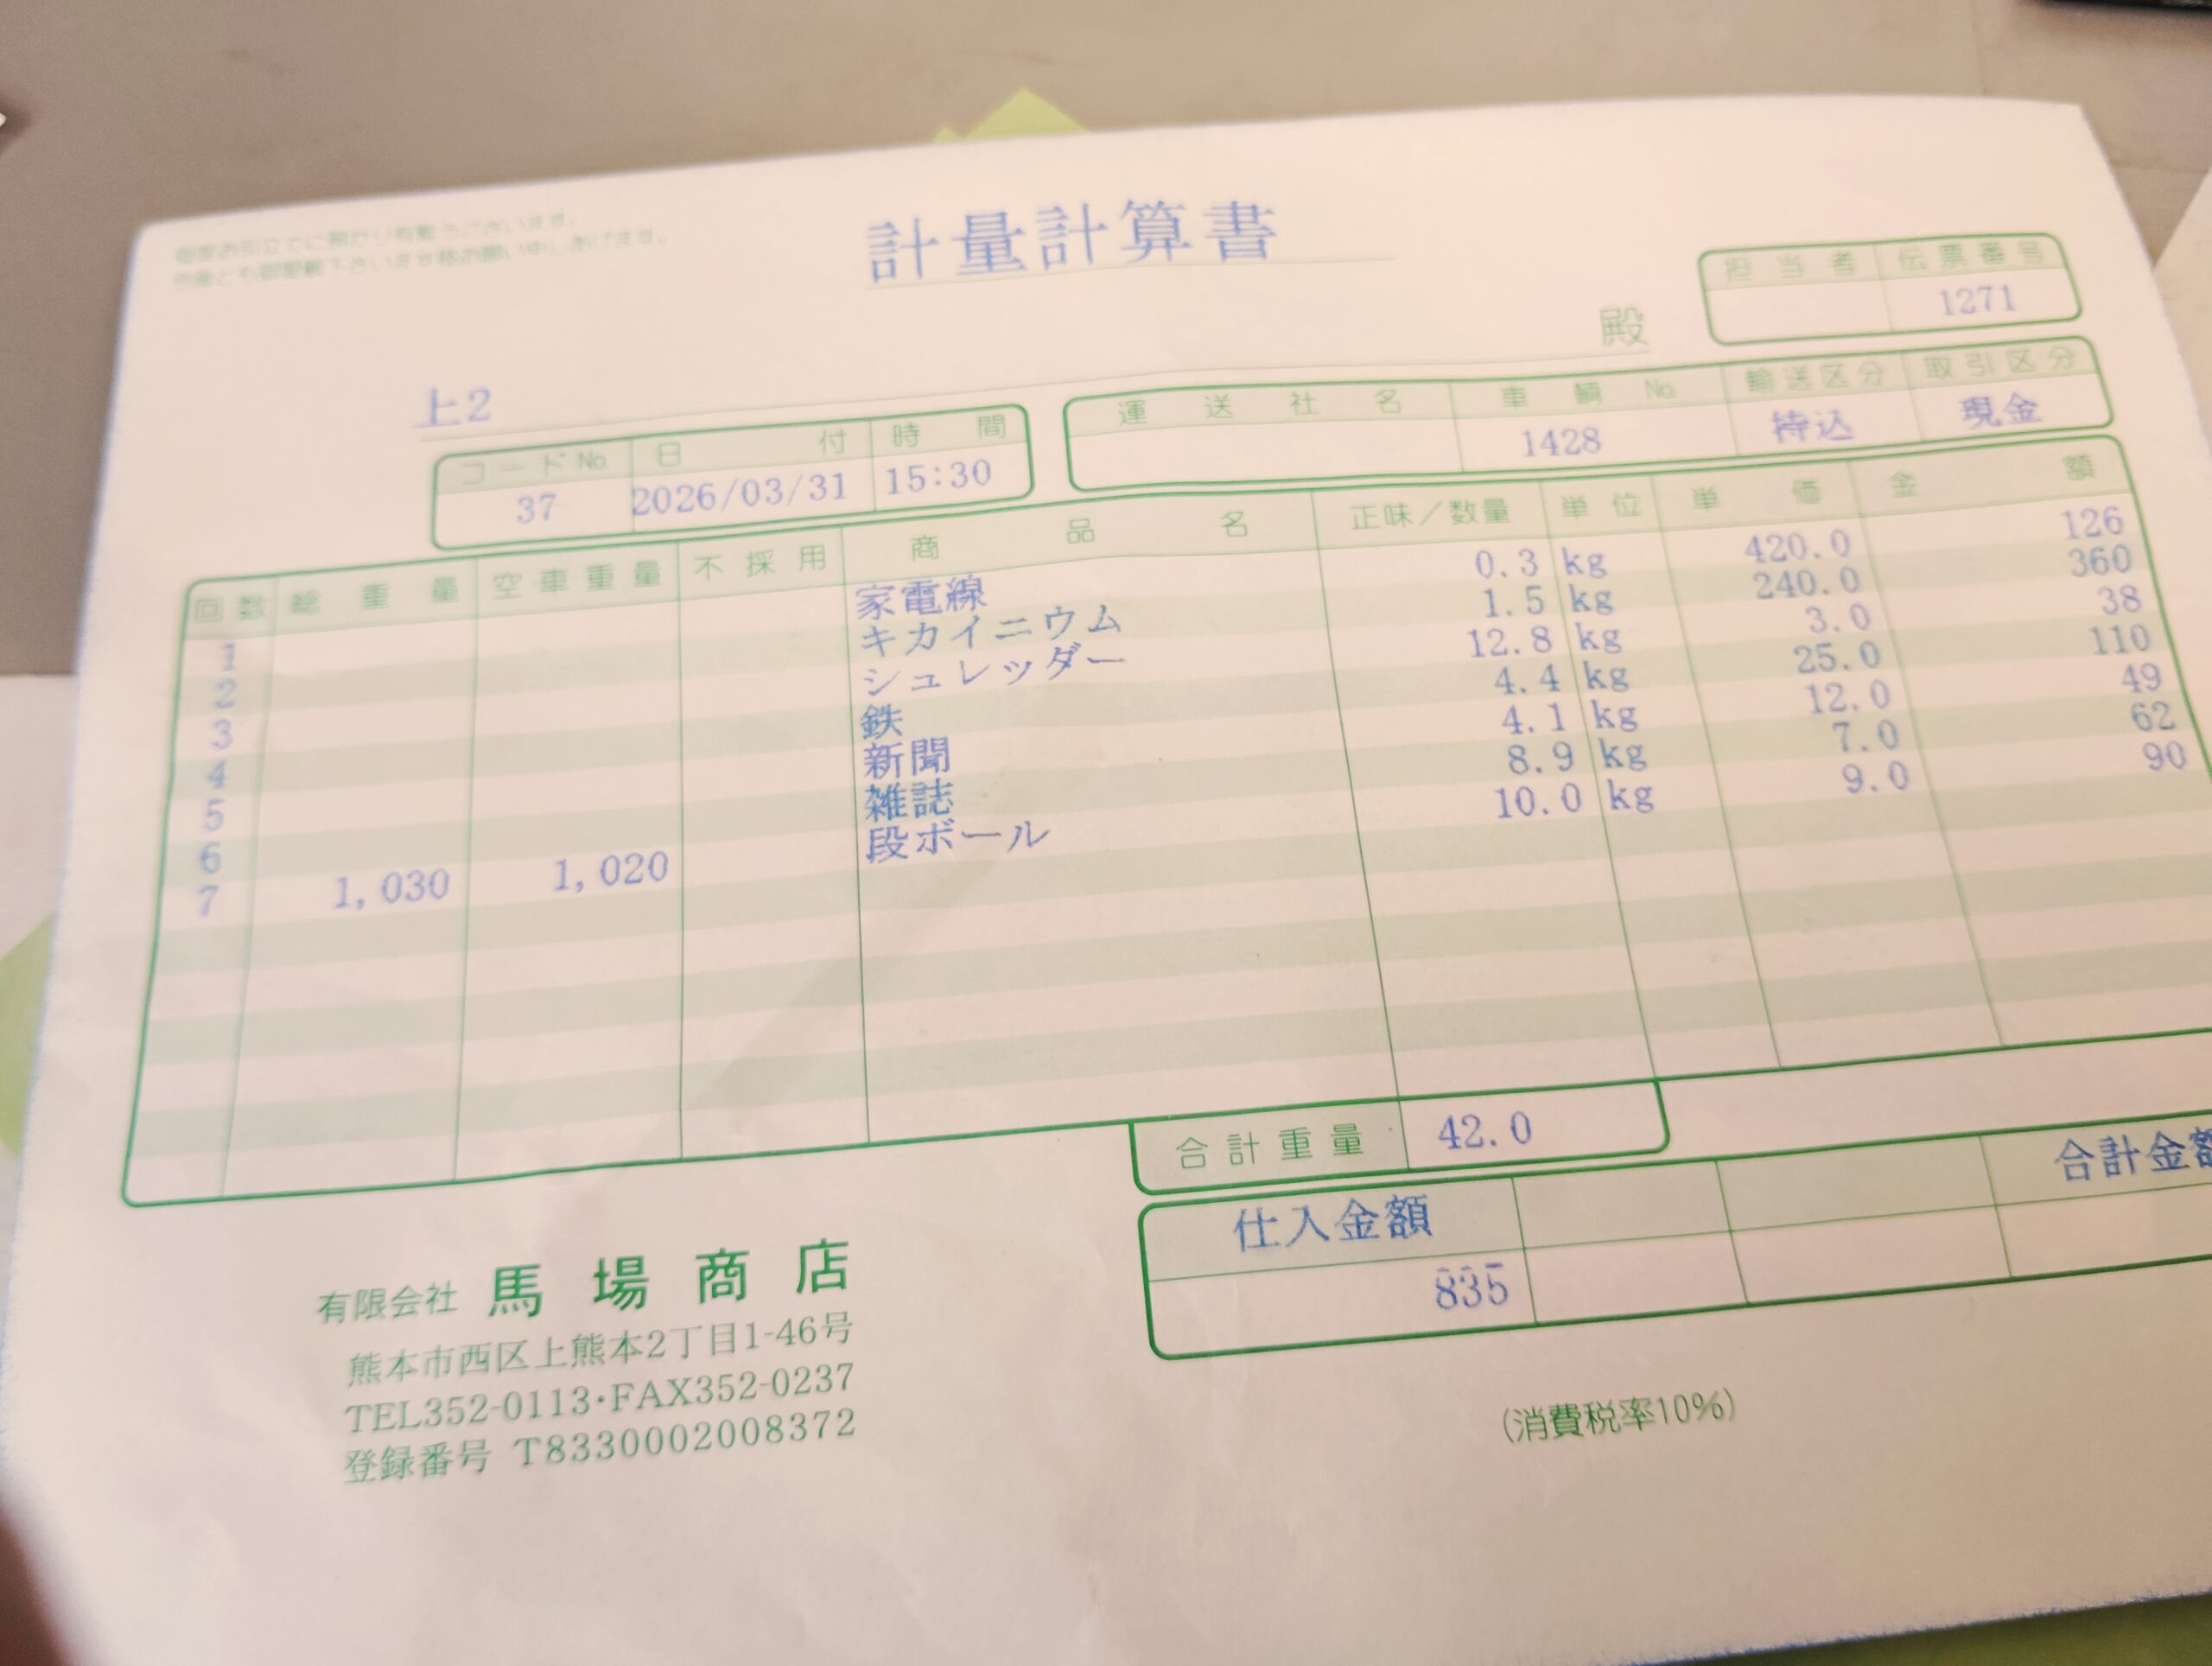 毎度お引立てに預かり有難うございます。
今後とも御愛顧下さいます様お願い申しあげます。
計量計算書
殿
担当者 伝票番号
1271
上2
コードNo. 日付 時間
37 2026/03/31 15:30
運送社名 車輌No. 輸送区分 取引区分
1428 持込 現金
回数 総重量 空車重量 不採用 商品名 正味/数量 単位 単価 金額
1 家電線 0.3 kg 420.0 126
2 キカイニウム 1.5 kg 240.0 360
3 シュレッダー 12.8 kg 3.0 38
4 鉄 4.4 kg 25.0 110
5 新聞 4.1 kg 12.0 49
6 雑誌 8.9 kg 7.0 62
7 1,030 1,020 段ボール 10.0 kg 9.0 90
合計重量 42.0
仕入金額 合計金額
835
(消費税率10%)
有限会社 馬場商店
熊本市西区上熊本2丁目1-46号
TEL352-0113・FAX352-0237
登録番号 T8330002008372